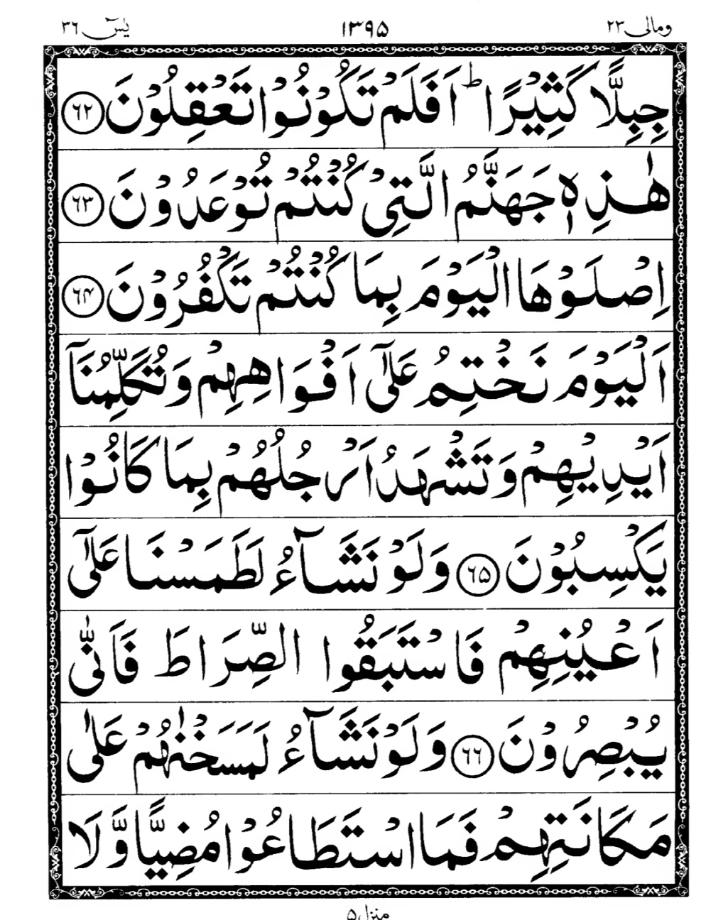 ومالی ۲۳
۱۳۹۵
یٰسٓ ۳۶
جِبِلًّا كَثِيْرًا ؕ اَفَلَمْ تَكُوْنُوْا تَعْقِلُوْنَ ﴿۶۲﴾
هٰذِهٖ جَهَنَّمُ الَّتِيْ كُنْتُمْ تُوْعَدُوْنَ ﴿۶۳﴾
اِصْلَوْهَا الْيَوْمَ بِمَا كُنْتُمْ تَكْفُرُوْنَ ﴿۶۴﴾
اَلْيَوْمَ نَخْتِمُ عَلٰٓى اَفْوَاهِهِمْ وَتُكَلِّمُنَاۤ
اَيْدِيْهِمْ وَتَشْهَدُ اَرْجُلُهُمْ بِمَا كَانُوْا
يَكْسِبُوْنَ ﴿۶۵﴾ وَلَوْ نَشَآءُ لَطَمَسْنَا عَلٰٓى
اَعْيُنِهِمْ فَاسْتَبَقُوا الصِّرَاطَ فَاَنّٰى
يُبْصِرُوْنَ ﴿۶۶﴾ وَلَوْ نَشَآءُ لَمَسَخْنٰهُمْ عَلٰى
مَكَانَتِهِمْ فَمَا اسْتَطَاعُوْا مُضِيًّا وَّلَا
منزل ۵